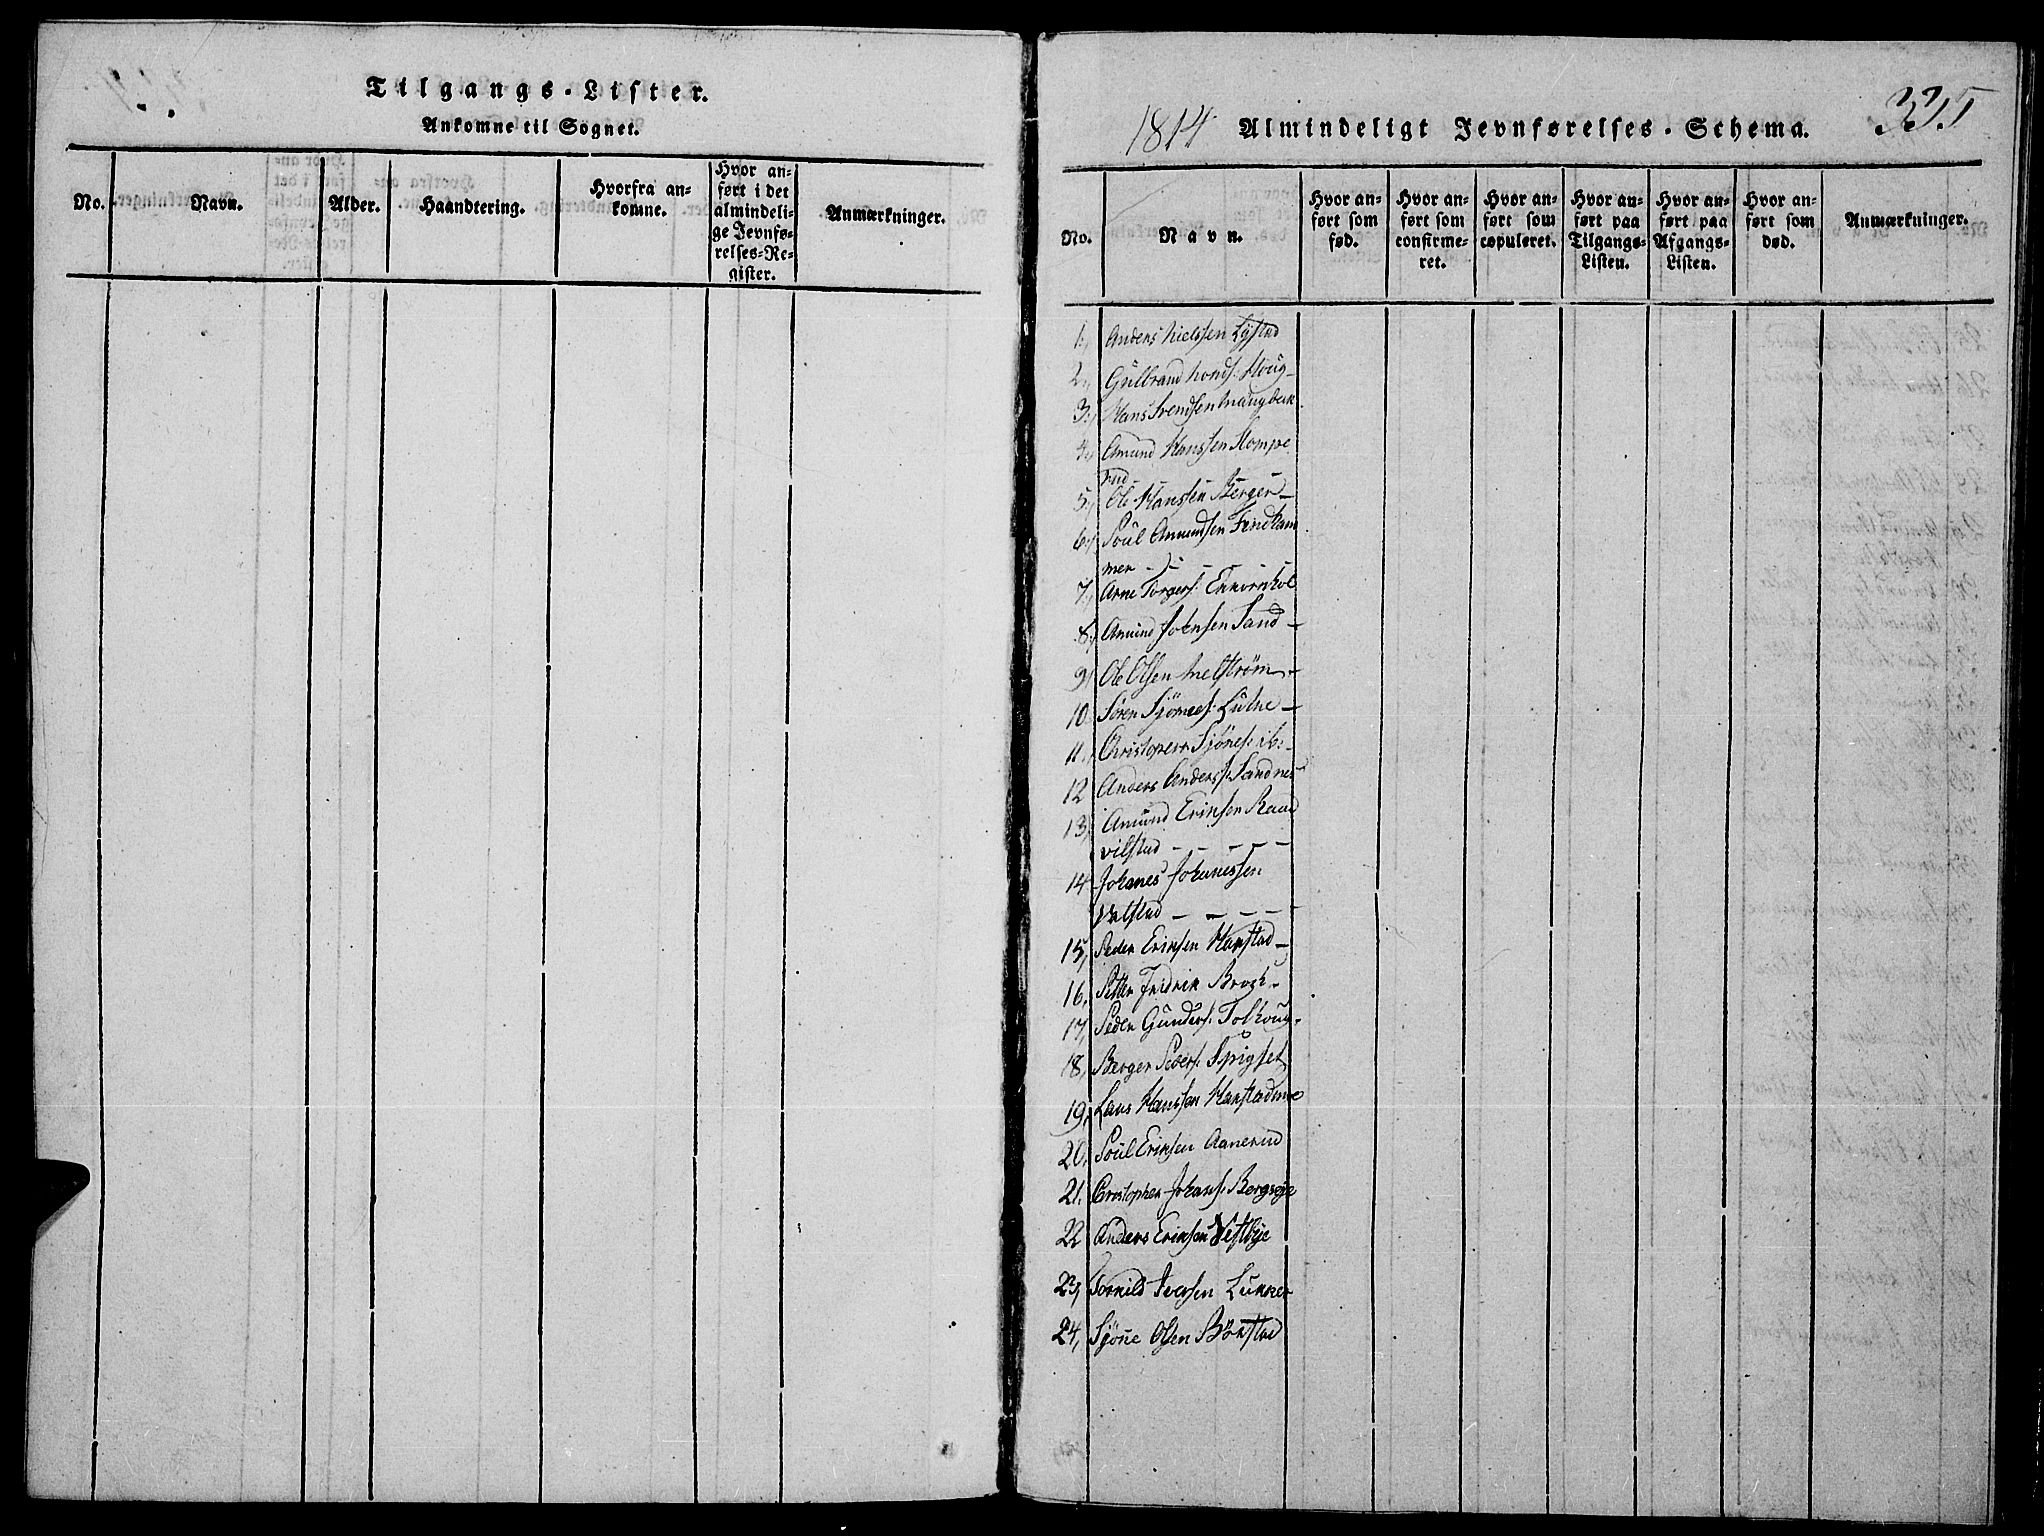 Tilgangs-Lister.
Ankomne til Sognet.
No.
Navn.
Alder.
Haandtering.
Hvorfra an-
komne.
Hvor an-
ført i det
almindeli-
ge Jevnfø-
relses-Re-
gister.
Anmærkninger.
1814
Almindeligt Jevnførelses-Schema.
335
No.
Navn.
Hvor an-
ført som
fød.
Hvor an-
ført som
confirme-
ret.
Hvor an-
ført som
copuleret.
Hvor an-
ført paa
Tilgangs-
Listen.
Hvor an-
ført paa
Afgangs-
Listen.
Hvor an-
ført som
død.
Anmærkninger.
1, Anders Nielssen Lystad
2, Gulbrand Houg
3, Hans Svendsen
4, Amund Hanssen Stompe
rud
5, Ole Hanssen Berger
6, Poul Amundsen
mer
7, Arne Torgers: Ekkornhol
8, Amund Johnsen Sand
9, Ole Olsen Melstrøm
10 Søren Luthe
11, Christopher Sjønes: ib:
12 Anders Anderss: Sandnes
13, Amund Eriksen Raad
vilstad
14 Johanes Johanessen
Valstad
15, Peder Eriksen Harstad
16, Petter Fridrik Brock
17, Peder Gunders: Tolhoug
18, Berger Peders: Sprigset
19, Lars Hanssen Harstadmoe
20, Poul Eriksen Aanerud
21, Cristopher Johans: Bergseje
22 Anders Eriksen Vestbye
23, Torkild Iversen Lukker
24, Sjøne Olsen Børstad